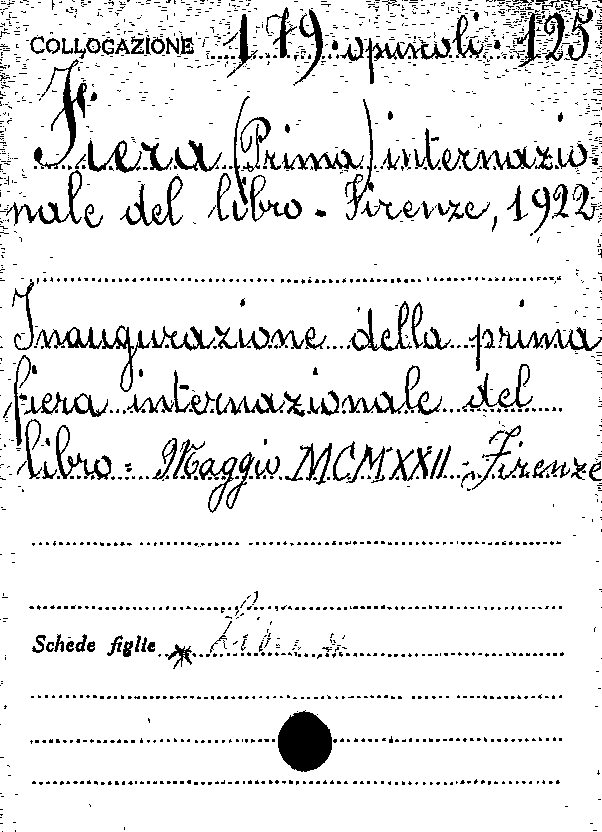 COLLOCAZIONE 179. opuscoli. 125
Fiera (Prima) internazio.
nale del libro. Firenze, 1922
Inaugurazione della prima
fiera internazionale del
libro = Maggio MCMXXII - Firenze
Schede figlie *